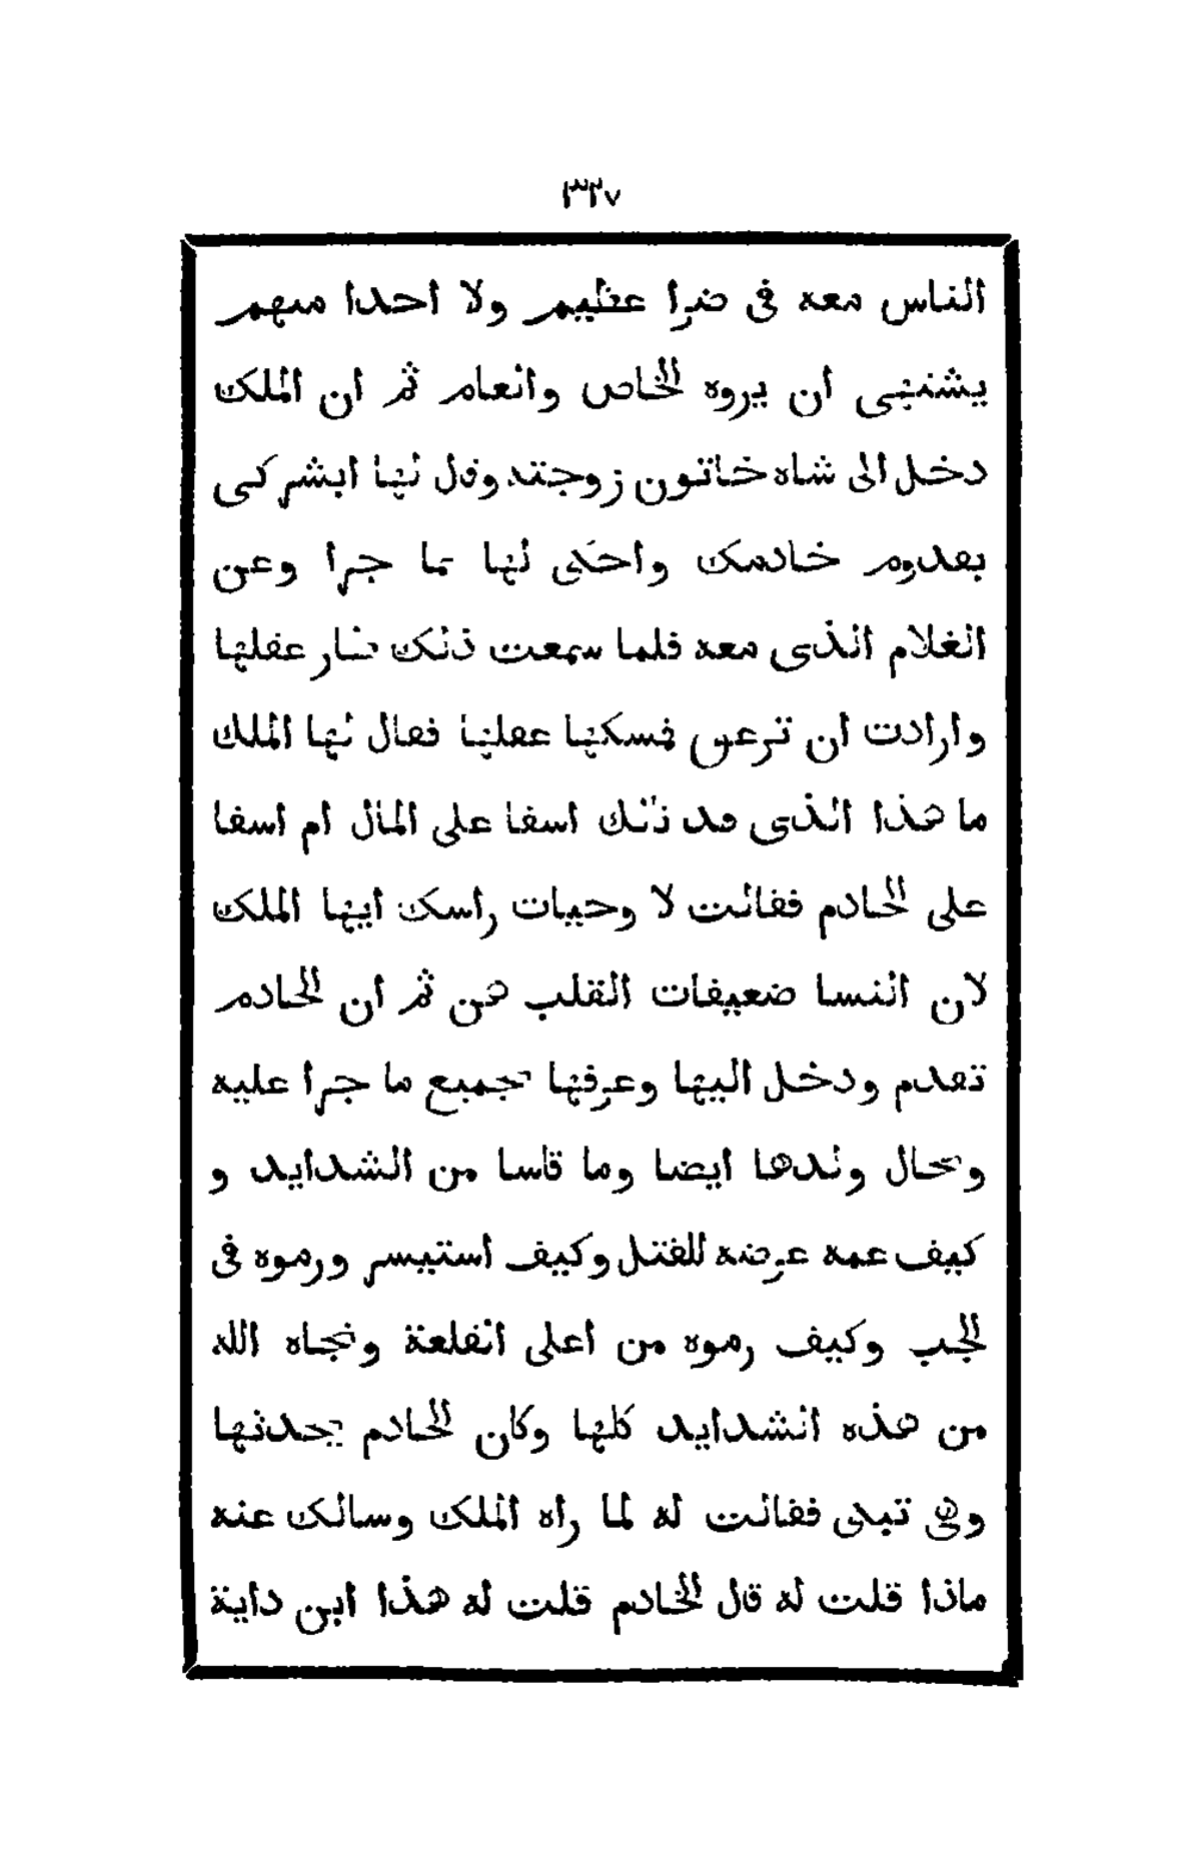 ٣٢٧
الناس معه فى ضرا عظيم ولا احدا منهم
يشتهى ان يروه الخاص وانعام ثم ان الملك
دخل الى شاه خاتون زوجته وقل لها ابشركى
بقدوم خادمك واحكى لها بما جرا وعن
الغلام الذى معه فلما سمعت ذلك طار عقلها
وارادت ان تزعق فمسكها عقلها فقال لها الملك
ما هذا الذى قد نالك اسفا على المال ام اسفا
على الخادم فقالت لا وحيات راسك ايها الملك
لان النسا ضعيفات القلب هن ثم ان الخادم
تقدم ودخل اليها وعرفها بجميع ما جرا عليه
وبحال ولدها ايضا وما قاسا من الشدايد و
كيف عمه عرضه للقتل وكيف استيسر ورموه فى
الجب وكيف رموه من اعلى القلعة ونجاه الله
من هذه الشدايد كلها وكان الخادم يحدثها
وهى تبكى فقالت له لما راه الملك وسالك عنه
ماذا قلت له قال الخادم قلت له هذا ابن داية